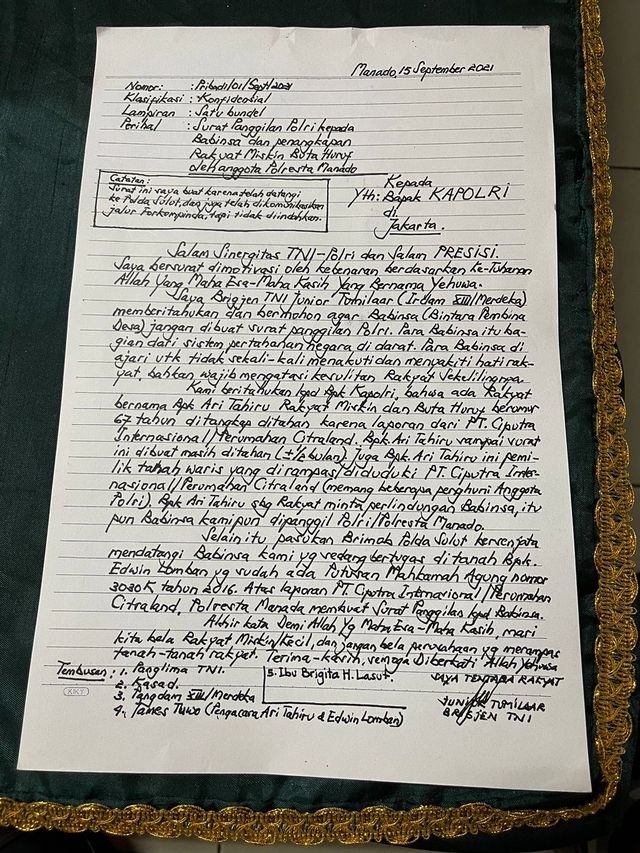 Manado, 15 September 2021
Nomor: : Pribadi/01/Sept/2021
Klasifikasi : Konfidential
Lampiran : Satu bundel
Perihal : Surat Panggilan Polri kepada
Babinsa dan penangkapan
Rakyat Miskin Buta Huruf
oleh anggota Polresta Manado
Catatan:
Surat ini saya buat karena telah datangi
ke Polda Sulut, dan juga telah dikomunikasikan
jalur Forkopimda, tapi tidak diindahkan.
Kepada
Yth: Bapak KAPOLRI
di
Jakarta.
Salam Sinergitas TNI-Polri dan Salam PRESISI.
Saya bersurat dimotivasi oleh kebenaran berdasarkan Ke-Tuhanan
Allah Yang Maha Esa-Maha Kasih Yang Bernama Yehuwa.
Saya Brigjen TNI Junior Tumilaar (Irdam XIII/Merdeka)
memberitahukan dan bermohon agar Babinsa (Bintara Pembina
Desa) jangan dibuat surat panggilan Polri. Para Babinsa itu ba-
gian dari sistem pertahanan negara di darat. Para Babinsa di
ajari utk tidak sekali-kali menakuti dan menyakiti hati rak-
yat, bahkan wajib mengatasi kesulitan Rakyat Sekelilingnya.
Kami beritahukan kpd Bpk Kapolri, bahwa ada Rakyat
bernama Bpk Ari Tahiru Rakyat Miskin dan Buta Huruf berumur
67 tahun ditangkap ditahan karena laporan dari PT. Ciputra
Internasional/Perumahan Citraland. Bpk Ari Tahiru sampai surat
ini dibuat masih ditahan (±½ bulan). Juga Bpk Ari Tahiru ini pemi-
lik tanah waris yang dirampas/diduduki PT. Ciputra Inter-
nasional/Perumahan Citraland (memang beberapa penghuni Anggota
Polri). Bpk Ari Tahiru sbg Rakyat minta perlindungan Babinsa, itu
pun Babinsa kamipun dipanggil Polri/Polresta Manado.
Selain itu pasukan Brimob Polda Sulut bersenjata
mendatangi Babinsa kami yg sedang bertugas di tanah Bpk.
Edwin Lomban yg sudah ada Putusan Mahkamah Agung nomor
3030K tahun 2016. Atas laporan PT. Ciputra Internasional/Perumahan
Citraland, Polresta Manado membuat Surat Panggilan kpd Babinsa.
Akhir kata Demi Allah Yg Maha Esa-Maha Kasih, mari
kita bela Rakyat Miskin/Kecil, dan jangan bela perusahaan yg merampas
tanah-tanah rakyat. Terima-kasih, semoga Diberkati Allah Yehuwa
Tembusan: 1. Panglima TNI.
2. Kasad.
3. Pangdam XIII/Merdeka
4. James Tuwo (Pengacara Ari Tahiru & Edwin Lomban)
5. Ibu Brigita H. Lasut.
SAYA TENTARA RAKYAT
JUNIOR TUMILAAR
BRIGJEN TNI
KIKY